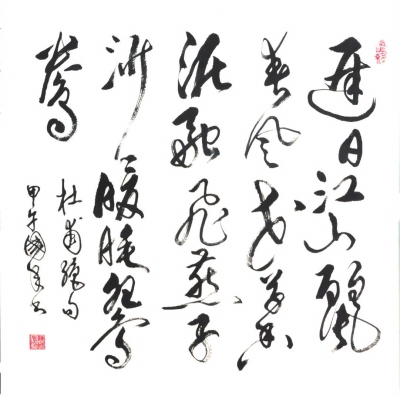 遲日江山麗
春風花草香
泥融飛燕子
沙暖睡鴛
鴦
杜甫絕句
甲午國書